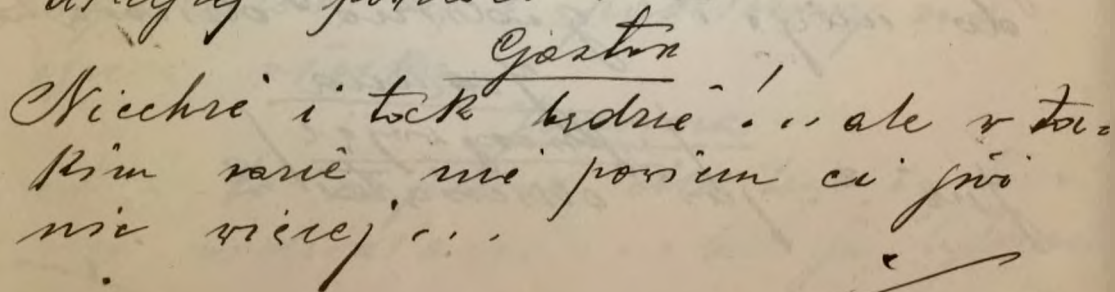 Gaston
Niechże i tak będzie!... ale w ta=
kim razie nie powiem ci już
nic więcej...